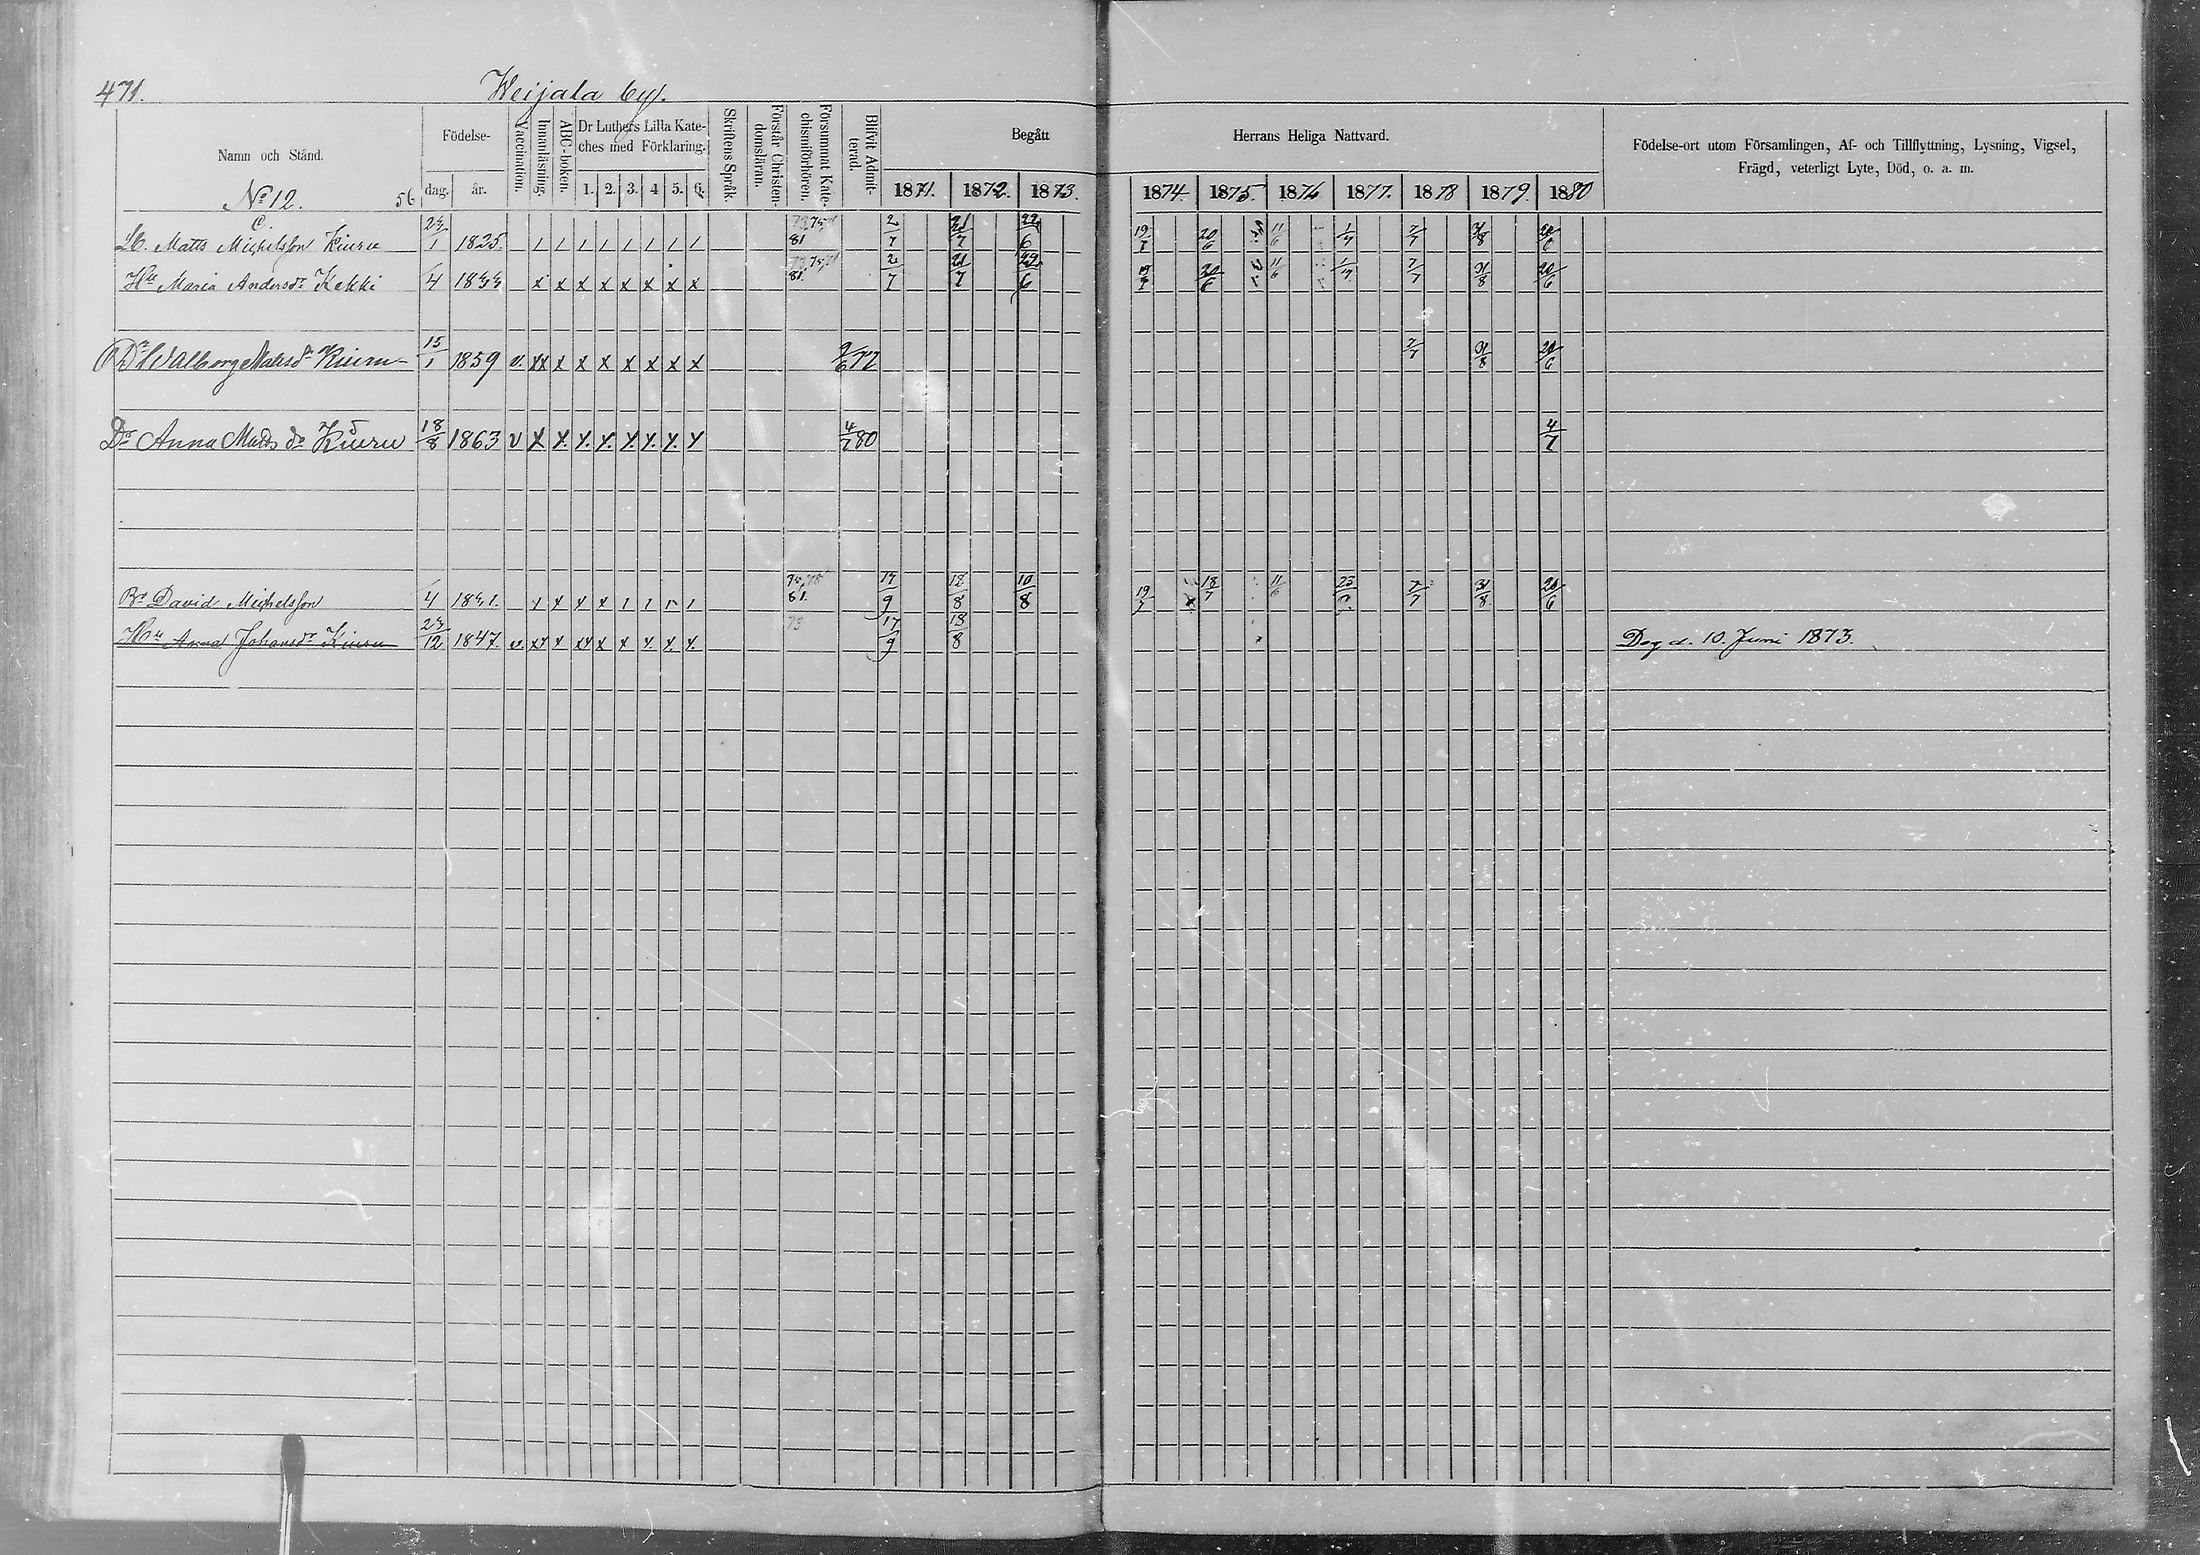 471.
Weijala by.
Namn och Stånd.
Födelse-
dag.
år.
Vaccination.
Innanläsning.
ABC-boken.
Dr Luthers Lilla Kate-
ches med Förklaring.
1. 2. 3. 4 5. 6.
Skriftens Språk.
Förstår Christen-
domsläran.
Försummat Kate-
chismiförhören.
Blifvit Admit-
terad.
Begått
Herrans Heliga Nattvard.
1871. 1872. 1873. 1874. 1875. 1876 1877. 1878 1879 1880
Födelse-ort utom Församlingen, Af- och Tillflyttning, Lysning, Vigsel,
Frägd, veterligt Lyte, Död, o. a. m.
No 12. 56
C.
Matts Michelsson Kiuru 1825. 1 1 1 1 1 1 1 1 81 2/7 21/7 22/6 19/7 20/6 11/6 1/7 7/7 31/8 20/6
Hu Maria Andersdr Kekki 4 x x x x x x x x 81. 2/7 21/7 22/6 19/7 20/6 11/6 1/7 7/7 31/8 20/6
Dr Walborg Mattsdr Kiuru 15/1 1859 v. xx x x x x x x x 9/6 77 7/7 31/8 20/6
Dr Anna Matts dr Kiuru 18/8 1863 v x x. x. x. x. x. x. x 4/7 80 4/7
Br David Michelsson 4 1 x x x 1 1 1 81. 17/9 18/8 10/8 19/7 18/7 11/6 7/7 31/8 20/6
Hu Anna Johansdr Kiuru 1847. v. xx x xx x x x. x. x. 73 17/9 18/8 Dog d. 10. Juni 1873.